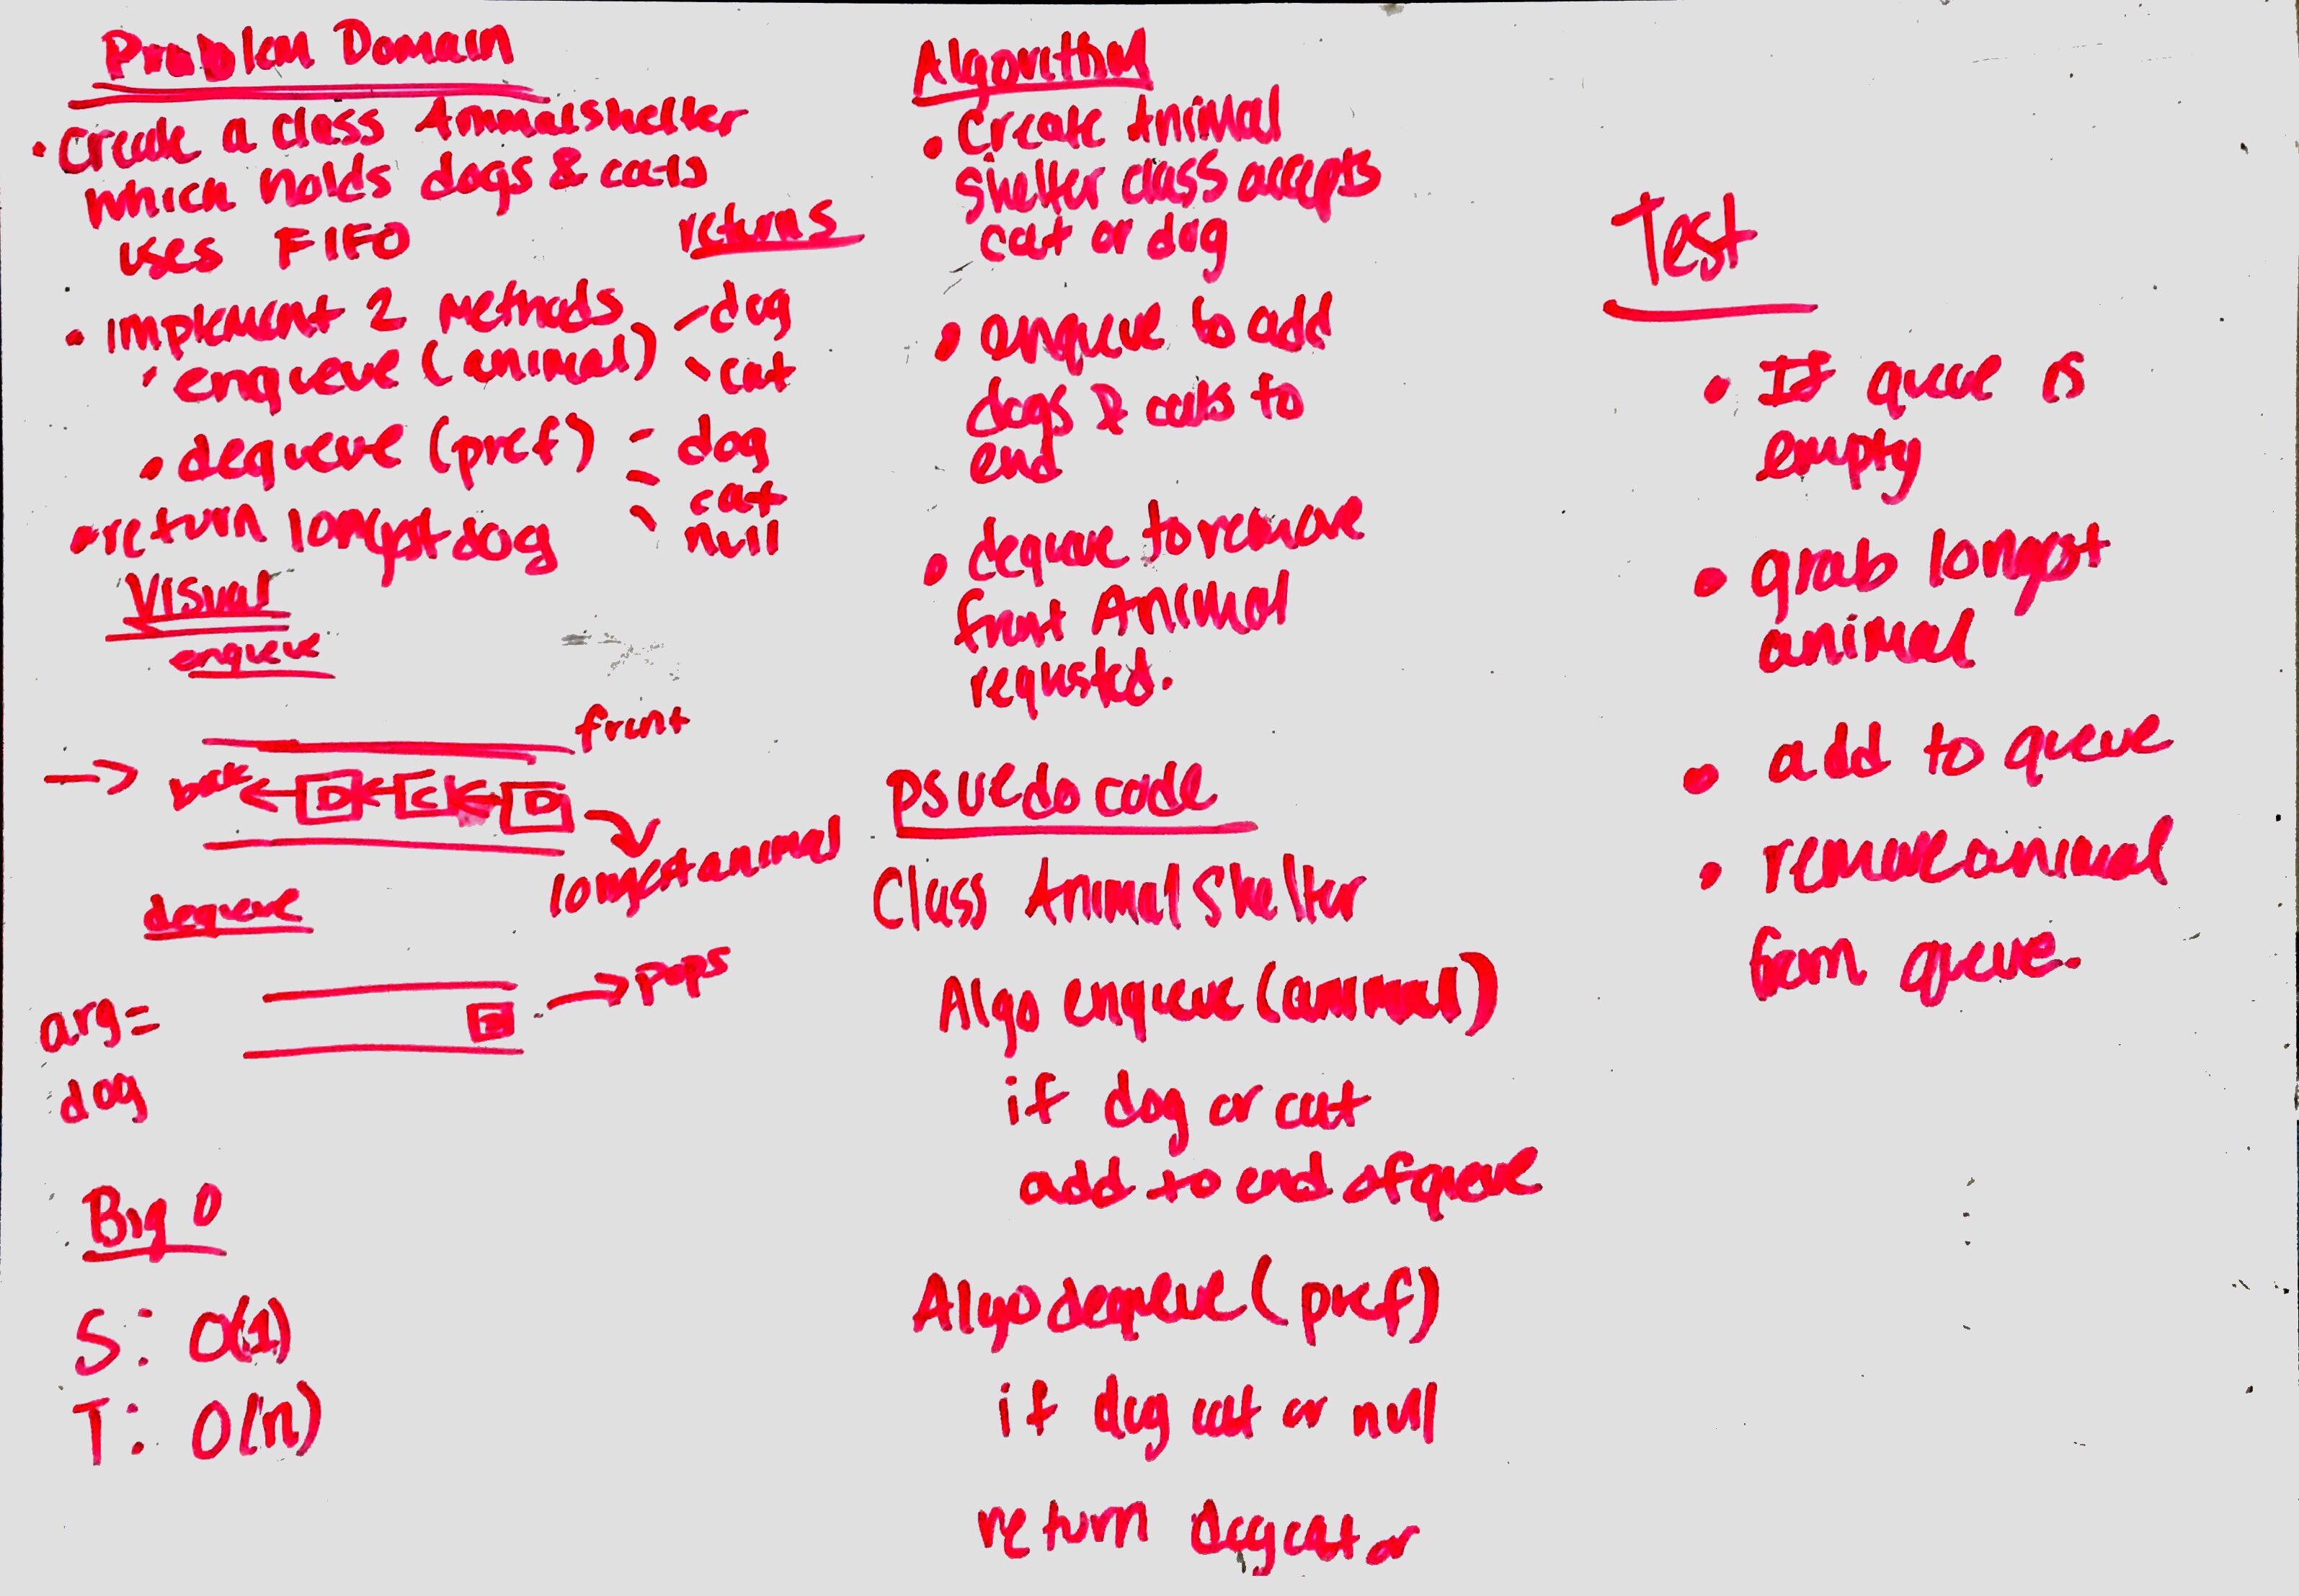 Problem Domain
• Create a class Animalshelter
which holds dogs & cats
uses FIFO
returns
• implement 2 methods
• enqueue (animal)
- dog
- cat
• dequeue (pref)
- dog
- cat
- null
• return longest dog
Visual
enqueue
front
→ back ← D ← C ← D
longest animal
dequeue
→ pops
arg =
dog
Big O
S: O(1)
T: O(n)
Algorithm
• Create Animal
Shelter class accepts
cat or dog
• enqueue to add
dogs & cats to
end
• dequeue to remove
front Animal
requsted.
psuedo code
Class AnimalShelter
Algo enqueue (animal)
if dog or cat
add to end of queue
Algo dequeue (pref)
if dog cat or null
return dog cat or
Test
• If queue is
empty
• grab longest
animal
• add to queue
• remove animal
from queue.